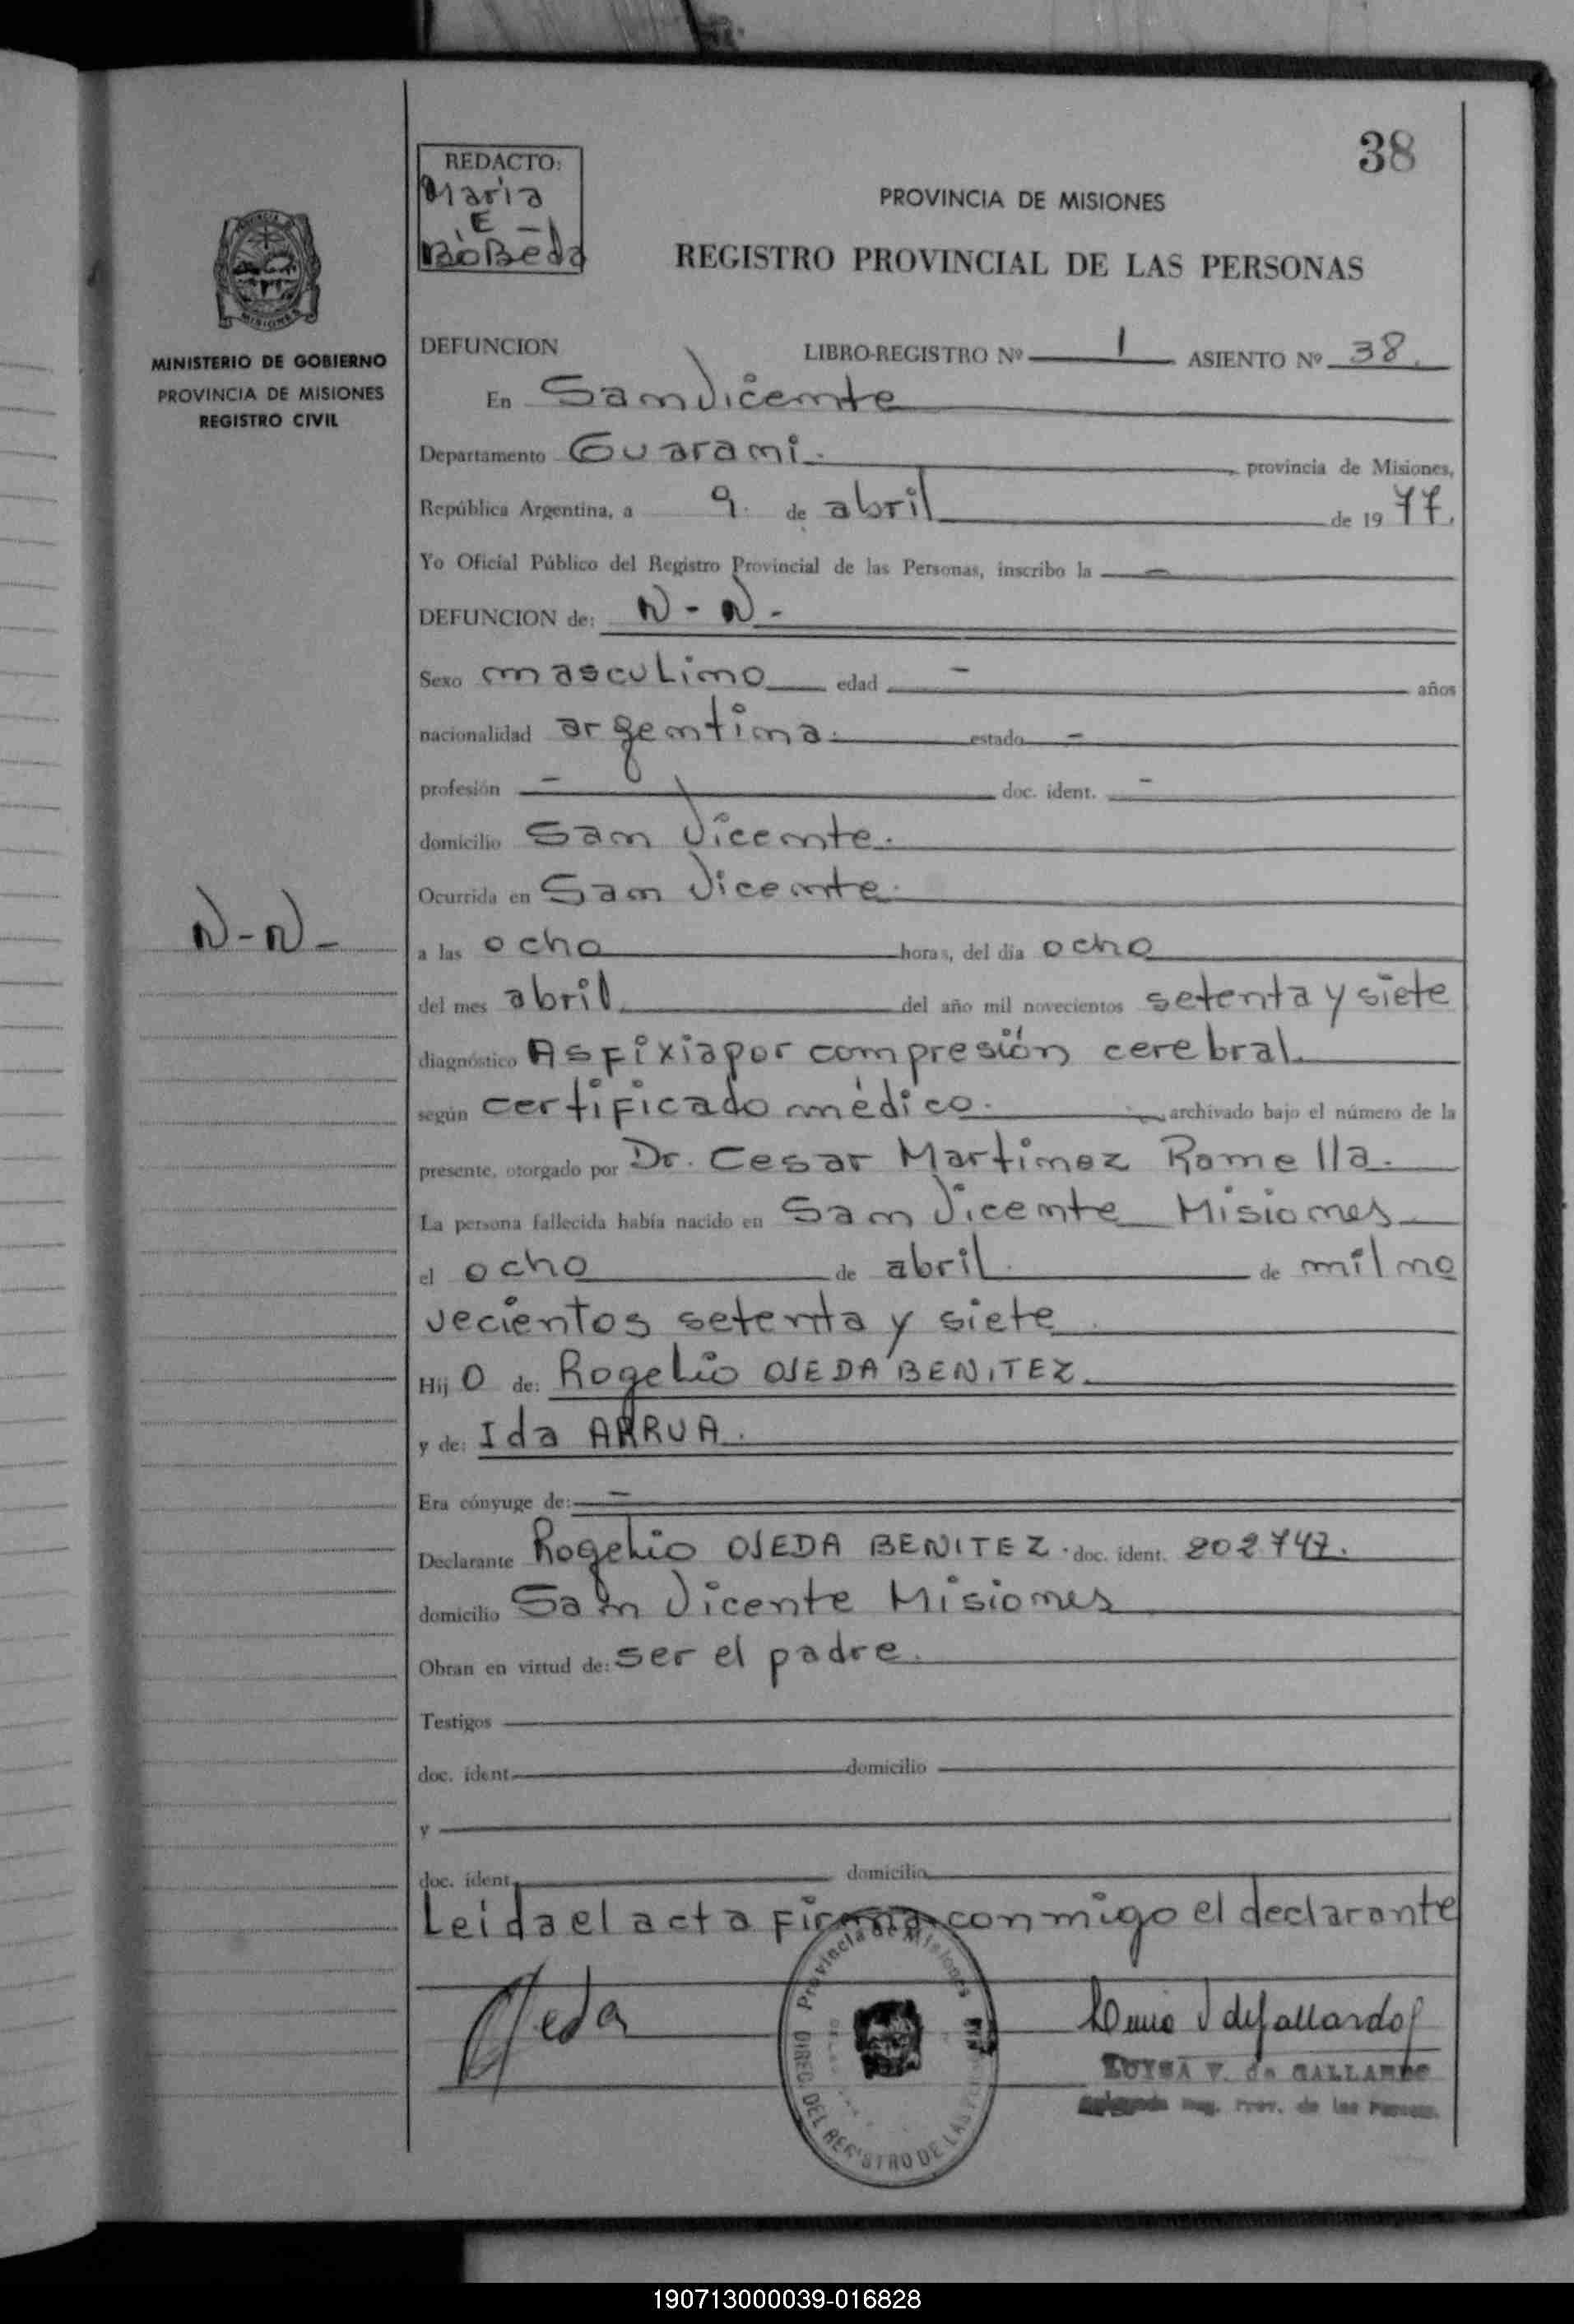 38
REDACTO:
Maria
E -
BoBeda
PROVINCIA DE MISIONES
REGISTRO PROVINCIAL DE LAS PERSONAS
PROVINCIA
MISIONES
MINISTERIO DE GOBIERNO
PROVINCIA DE MISIONES
REGISTRO CIVIL
DEFUNCION LIBRO-REGISTRO Nº 1 ASIENTO Nº 38.
En San Vicente
Departamento Guarani. , provincia de Misiones,
República Argentina, a 9. de abril de 19 77.
Yo Oficial Público del Registro Provincial de las Personas, inscribo la -
DEFUNCION de: N - N -
Sexo masculino edad - años
nacionalidad argentina. estado -
profesión - doc. ident. -
domicilio San Vicente.
Ocurrida en San Vicente.
N-N-
a las ocho horas, del día ocho
del mes abril del año mil novecientos setenta y siete
diagnóstico Asfixia por compresión cerebral.
según certificado médico. archivado bajo el número de la
presente, otorgado por Dr. Cesar Martinez Romella.
La persona fallecida había nacido en San Vicente Misiones
el ocho de abril. de mil no
vecientos setenta y siete
Hij o de: Rogelio OJEDA BENITEZ.
y de: Ida ARRUA.
Era cónyuge de: -
Declarante Rogelio OJEDA BENITEZ. doc. ident. 202747.
domicilio San Vicente Misiones
Obran en virtud de: ser el padre.
Testigos
doc. ident. domicilio
y
doc. ident. domicilio
Leida el acta firma conmigo el declarante
Ojeda
Provincia de Misiones
DIREC. DEL REGISTRO DE LAS
V de Gallardo
LUYSA V. de GALLARDO
Reg. Prov. de las Person.
190713000039-016828